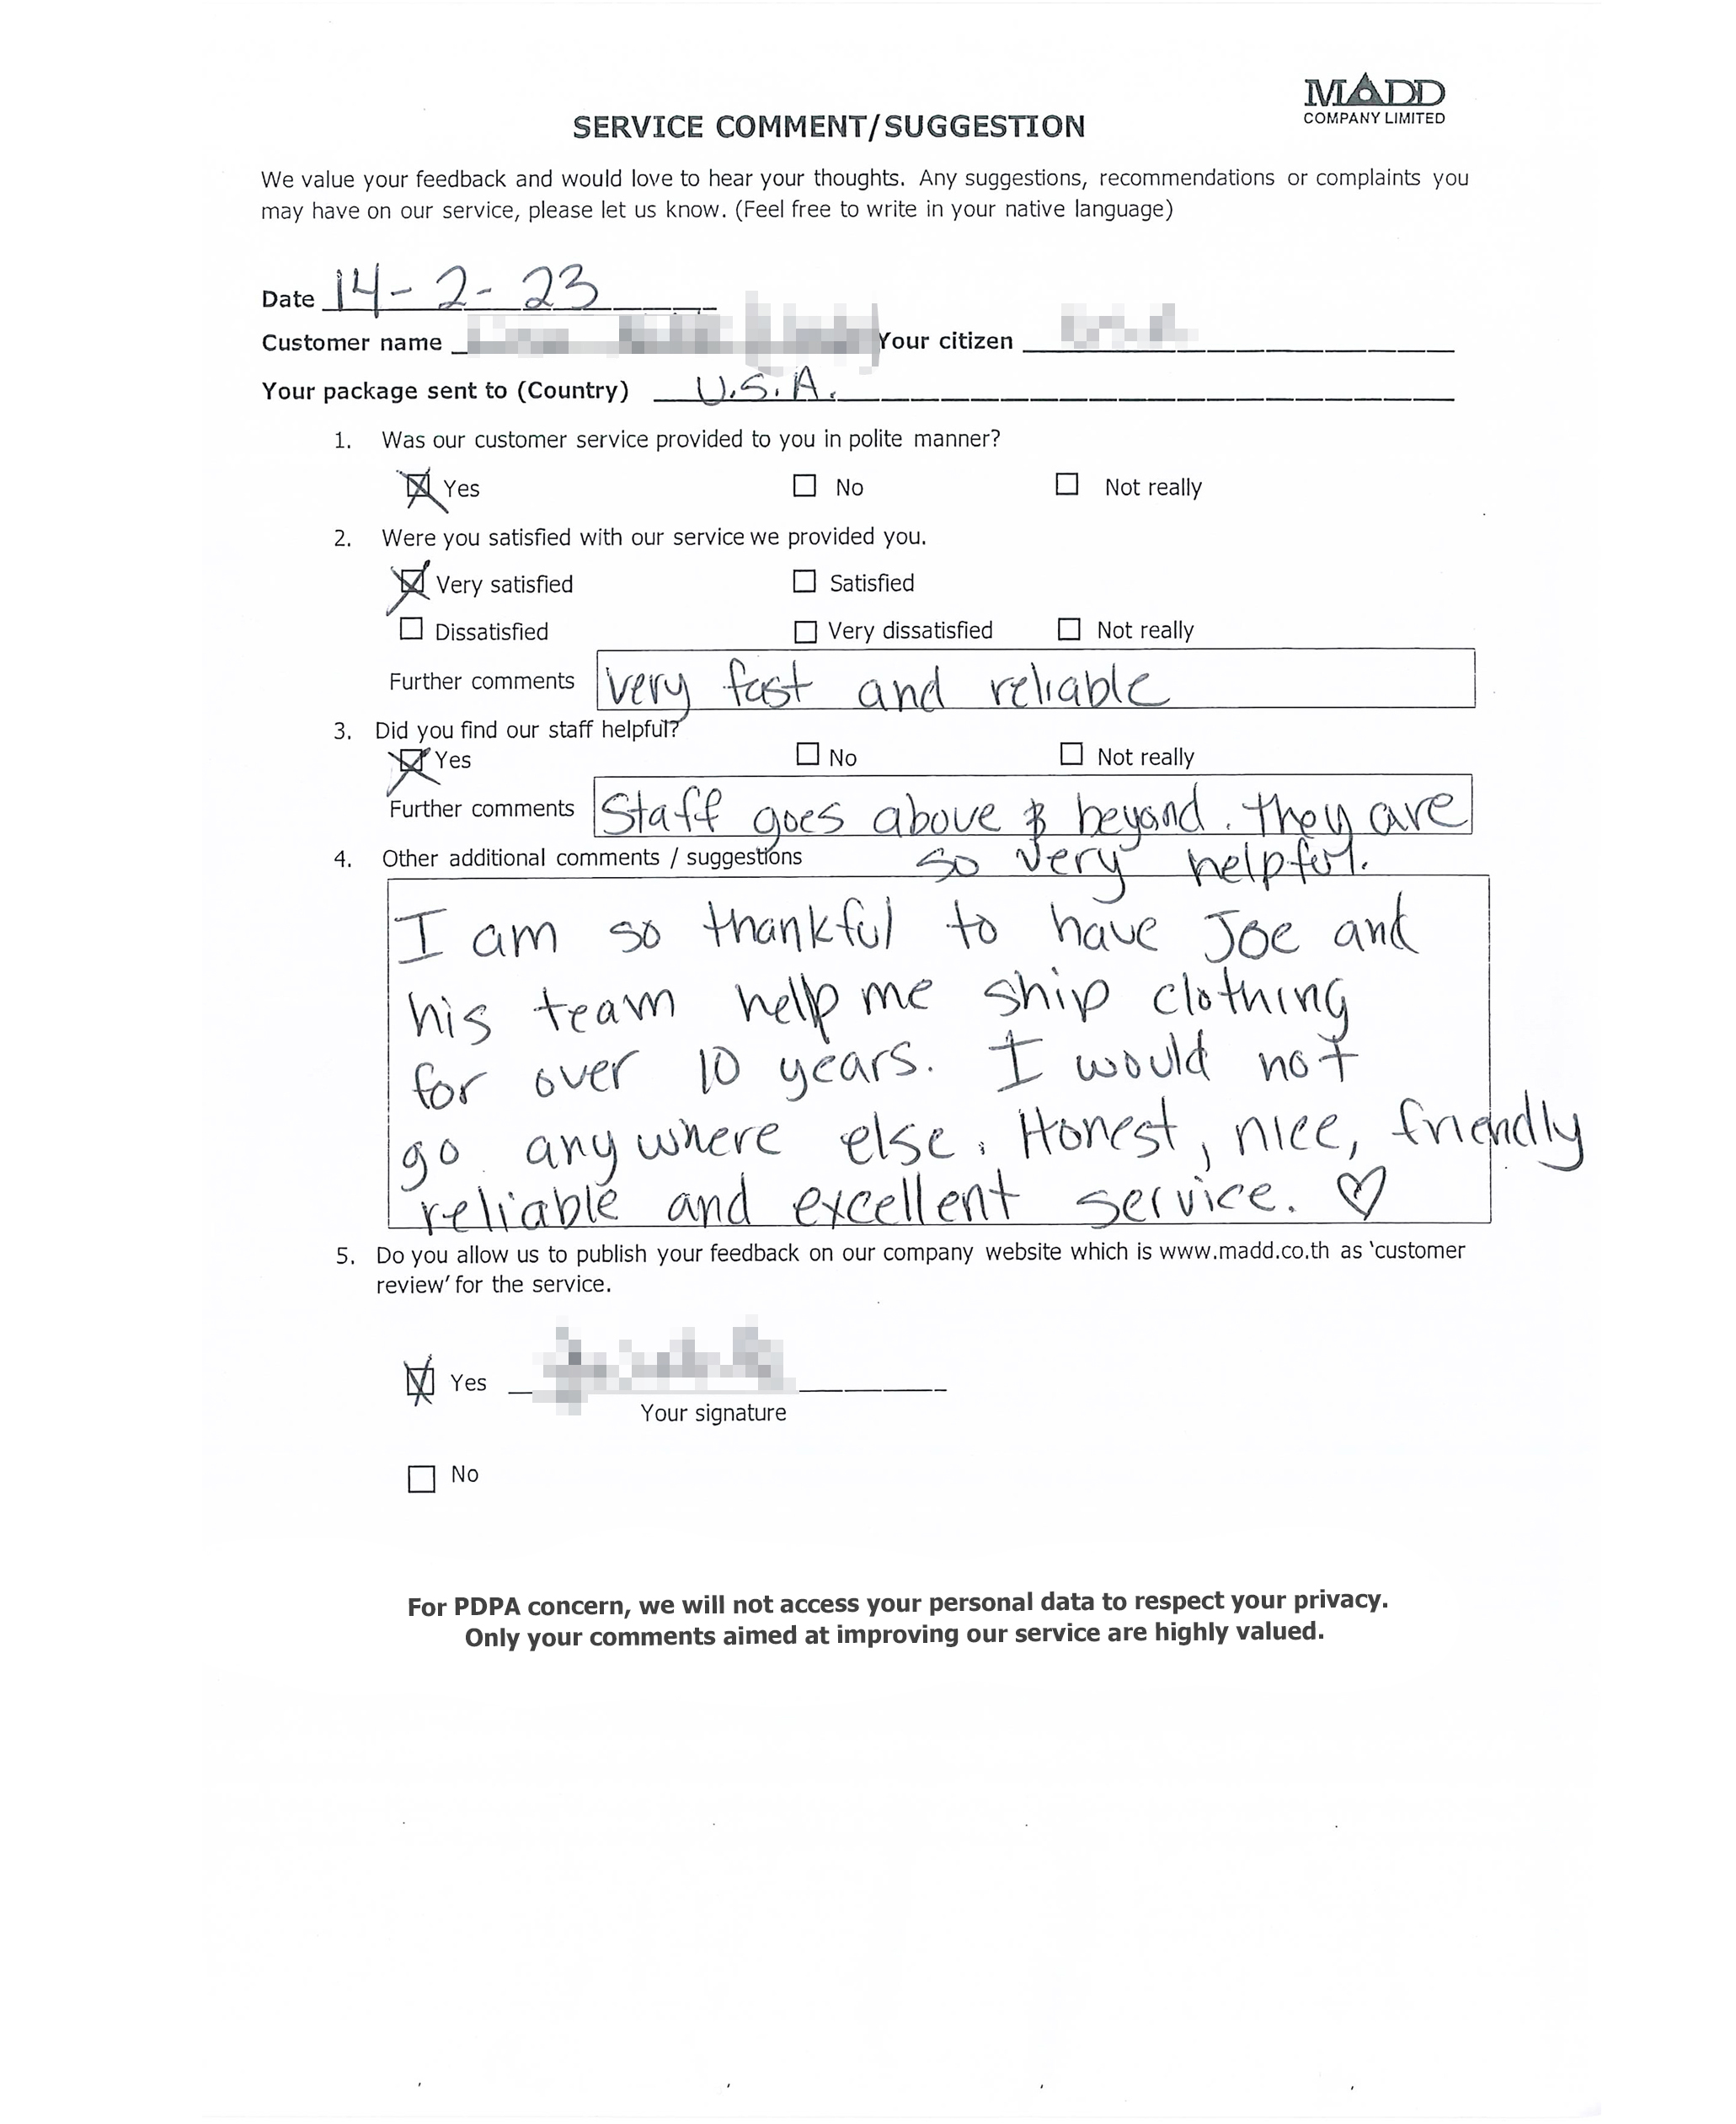 MADD
COMPANY LIMITED
SERVICE COMMENT/SUGGESTION
We value your feedback and would love to hear your thoughts. Any suggestions, recommendations or complaints you
may have on our service, please let us know. (Feel free to write in your native language)
Date 14-2-23
Customer name Your citizen
Your package sent to (Country) U.S.A.
1. Was our customer service provided to you in polite manner?
Yes No Not really
2. Were you satisfied with our service we provided you.
Very satisfied Satisfied
Dissatisfied Very dissatisfied Not really
Further comments very fast and reliable
3. Did you find our staff helpful?
Yes No Not really
Further comments Staff goes above & beyond. they are
4. Other additional comments / suggestions so very helpful.
I am so thankful to have Joe and
his team help me ship clothing
for over 10 years. I would not
go anywhere else. Honest, nice, friendly
reliable and excellent service. ♡
5. Do you allow us to publish your feedback on our company website which is www.madd.co.th as ‘customer
review’ for the service.
Yes
Your signature
No
For PDPA concern, we will not access your personal data to respect your privacy.
Only your comments aimed at improving our service are highly valued.